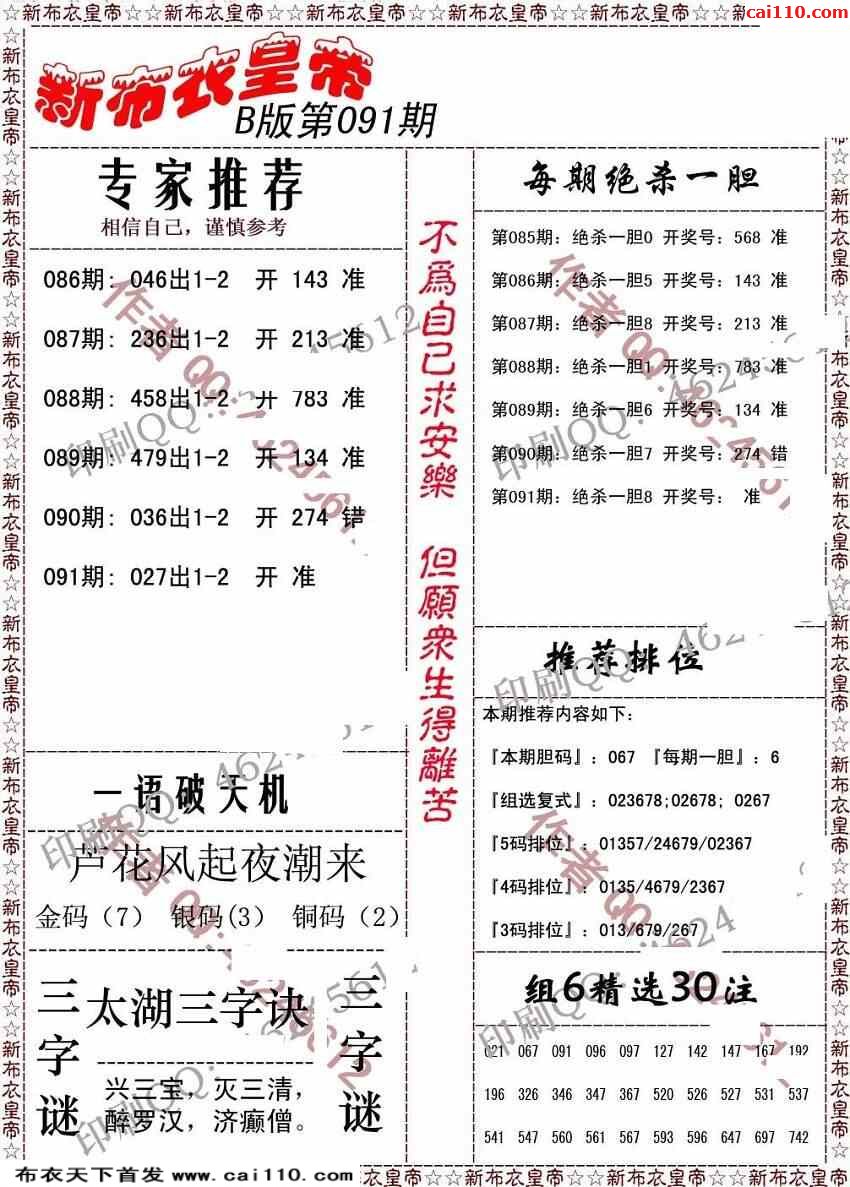 ☆☆新布衣皇帝☆☆新布衣皇帝☆☆新布衣皇帝☆☆新布衣皇帝☆☆新布衣皇帝☆☆新
cai110.com
新布衣皇帝
B版第091期
专家推荐
相信自己，谨慎参考
086期: 046出1-2 开 143 准
087期: 236出1-2 开 213 准
088期: 458出1-2 开 783 准
089期: 479出1-2 开 134 准
090期: 036出1-2 开 274 错
091期: 027出1-2 开 准
一语破天机
芦花风起夜潮来
金码（7） 银码(3) 铜码（2）
三字谜
太湖三字诀
兴三宝，灭三清，
醉罗汉，济癫僧。
三字谜
不爲自己求安樂 但願衆生得離苦
每期绝杀一胆
第085期: 绝杀一胆0 开奖号: 568 准
第086期: 绝杀一胆5 开奖号: 143 准
第087期: 绝杀一胆8 开奖号: 213 准
第088期: 绝杀一胆1 开奖号: 783 准
第089期: 绝杀一胆6 开奖号: 134 准
第090期: 绝杀一胆7 开奖号: 274 错
第091期: 绝杀一胆8 开奖号: 准
推荐排位
本期推荐内容如下:
『本期胆码』: 067 『每期一胆』: 6
『组选复式』: 023678;02678; 0267
『5码排位』: 01357/24679/02367
『4码排位』: 0135/4679/2367
『3码排位』: 013/679/267
组6精选30注
021 067 091 096 097 127 142 147 167 192
196 326 346 347 367 520 526 527 531 537
541 547 560 561 567 593 596 647 697 742
布衣天下首发 www.cai110.com
衣皇帝☆☆新布衣皇帝☆☆新布衣皇帝☆☆新布衣皇帝☆☆